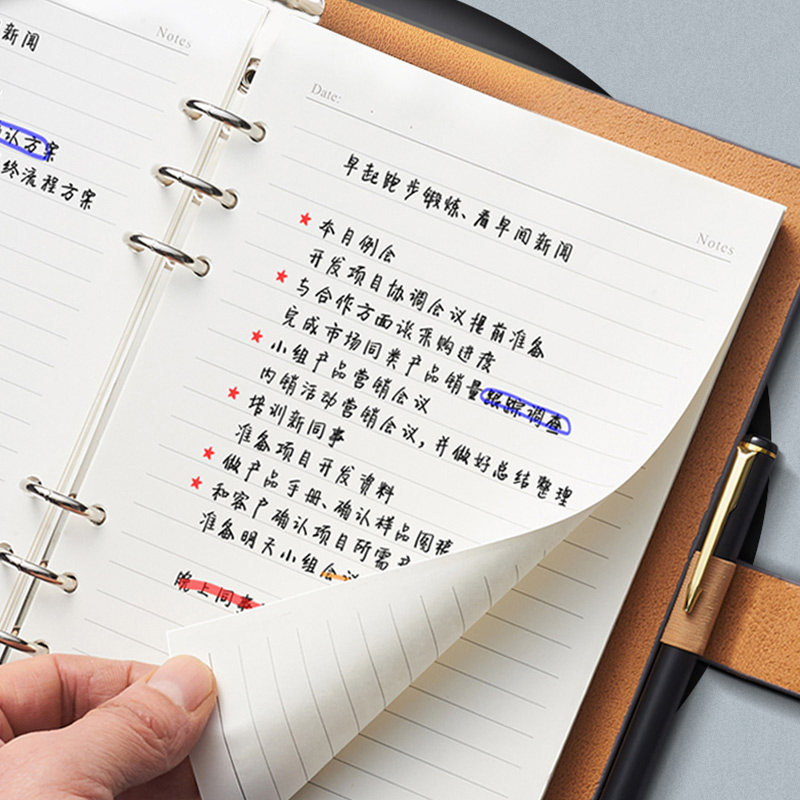 新闻
Notes
认方案
终流程方案
Date:
Notes
早起跑步锻炼、看早间新闻
★ 本月例会
开发项目协调会议提前准备
★ 与合作方面谈采购进度
完成市场同类产品销量跟踪调查
★ 小组产品营销会议
内销活动营销会议，并做好总结整理
★ 培训新同事
准备项目开发资料
★ 做产品手册、确认样品图稿
★ 和客户确认项目所需产
准备明天小组会议
晚上同事